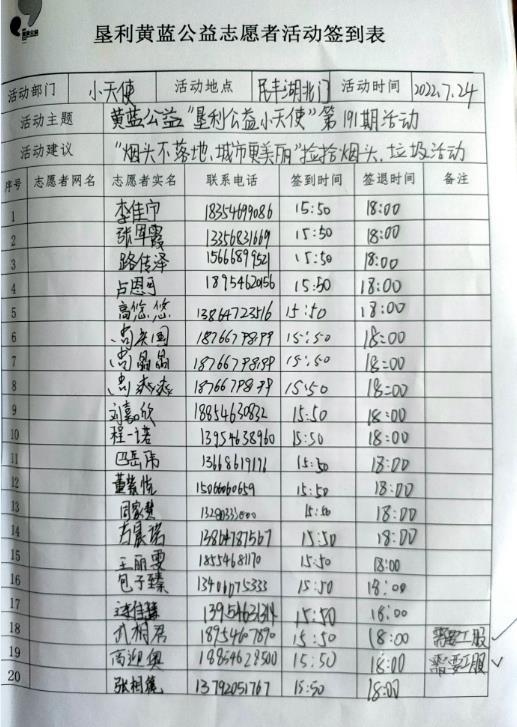 垦利黄蓝公益志愿者活动签到表
活动部门 小天使 活动地点 民丰湖北门 活动时间 2022.7.24
活动主题 黄蓝公益"垦利公益小天使"第191期活动
活动建议 "烟头不落地,城市更美丽"捡拾烟头、垃圾活动
序号 志愿者网名 志愿者实名 联系电话 签到时间 签退时间 备注
1 李佳宁 18354699086 15:50 18:00
2 张军霞 13356831669 15:50 18:00
3 路传泽 15666899521 15:50 18:00
4 占恩可 18954620156 15:50 18:00
5 高悠悠 13864723516 15:50 18:00
6 尚宾国 18766798199 15:50 18:00
7 尚晶晶 18766798199 15:50 18:00
8 尚焱焱 18766798199 15:50 18:00
9 刘嘉欣 18854630832 15:50 18:00
10 程一诺 13954638960 15:50 18:00
11 巴岳伟 13668619171 15:50 18:00
12 董紫悦 15066060659 15:50 18:00
13 周家慧 15:50 18:00
14 尚晨诺 13864787567 15:50 18:00
15 王丽雯 18554681170 15:50 18:00
16 包子臻 15:50 18:00
17 15:50 18:00
18 武桐名 18954607890 15:50 18:00 需要工服
19 18854628500 15:50 18:00 需要工服
20 13792051767 15:50 18:00